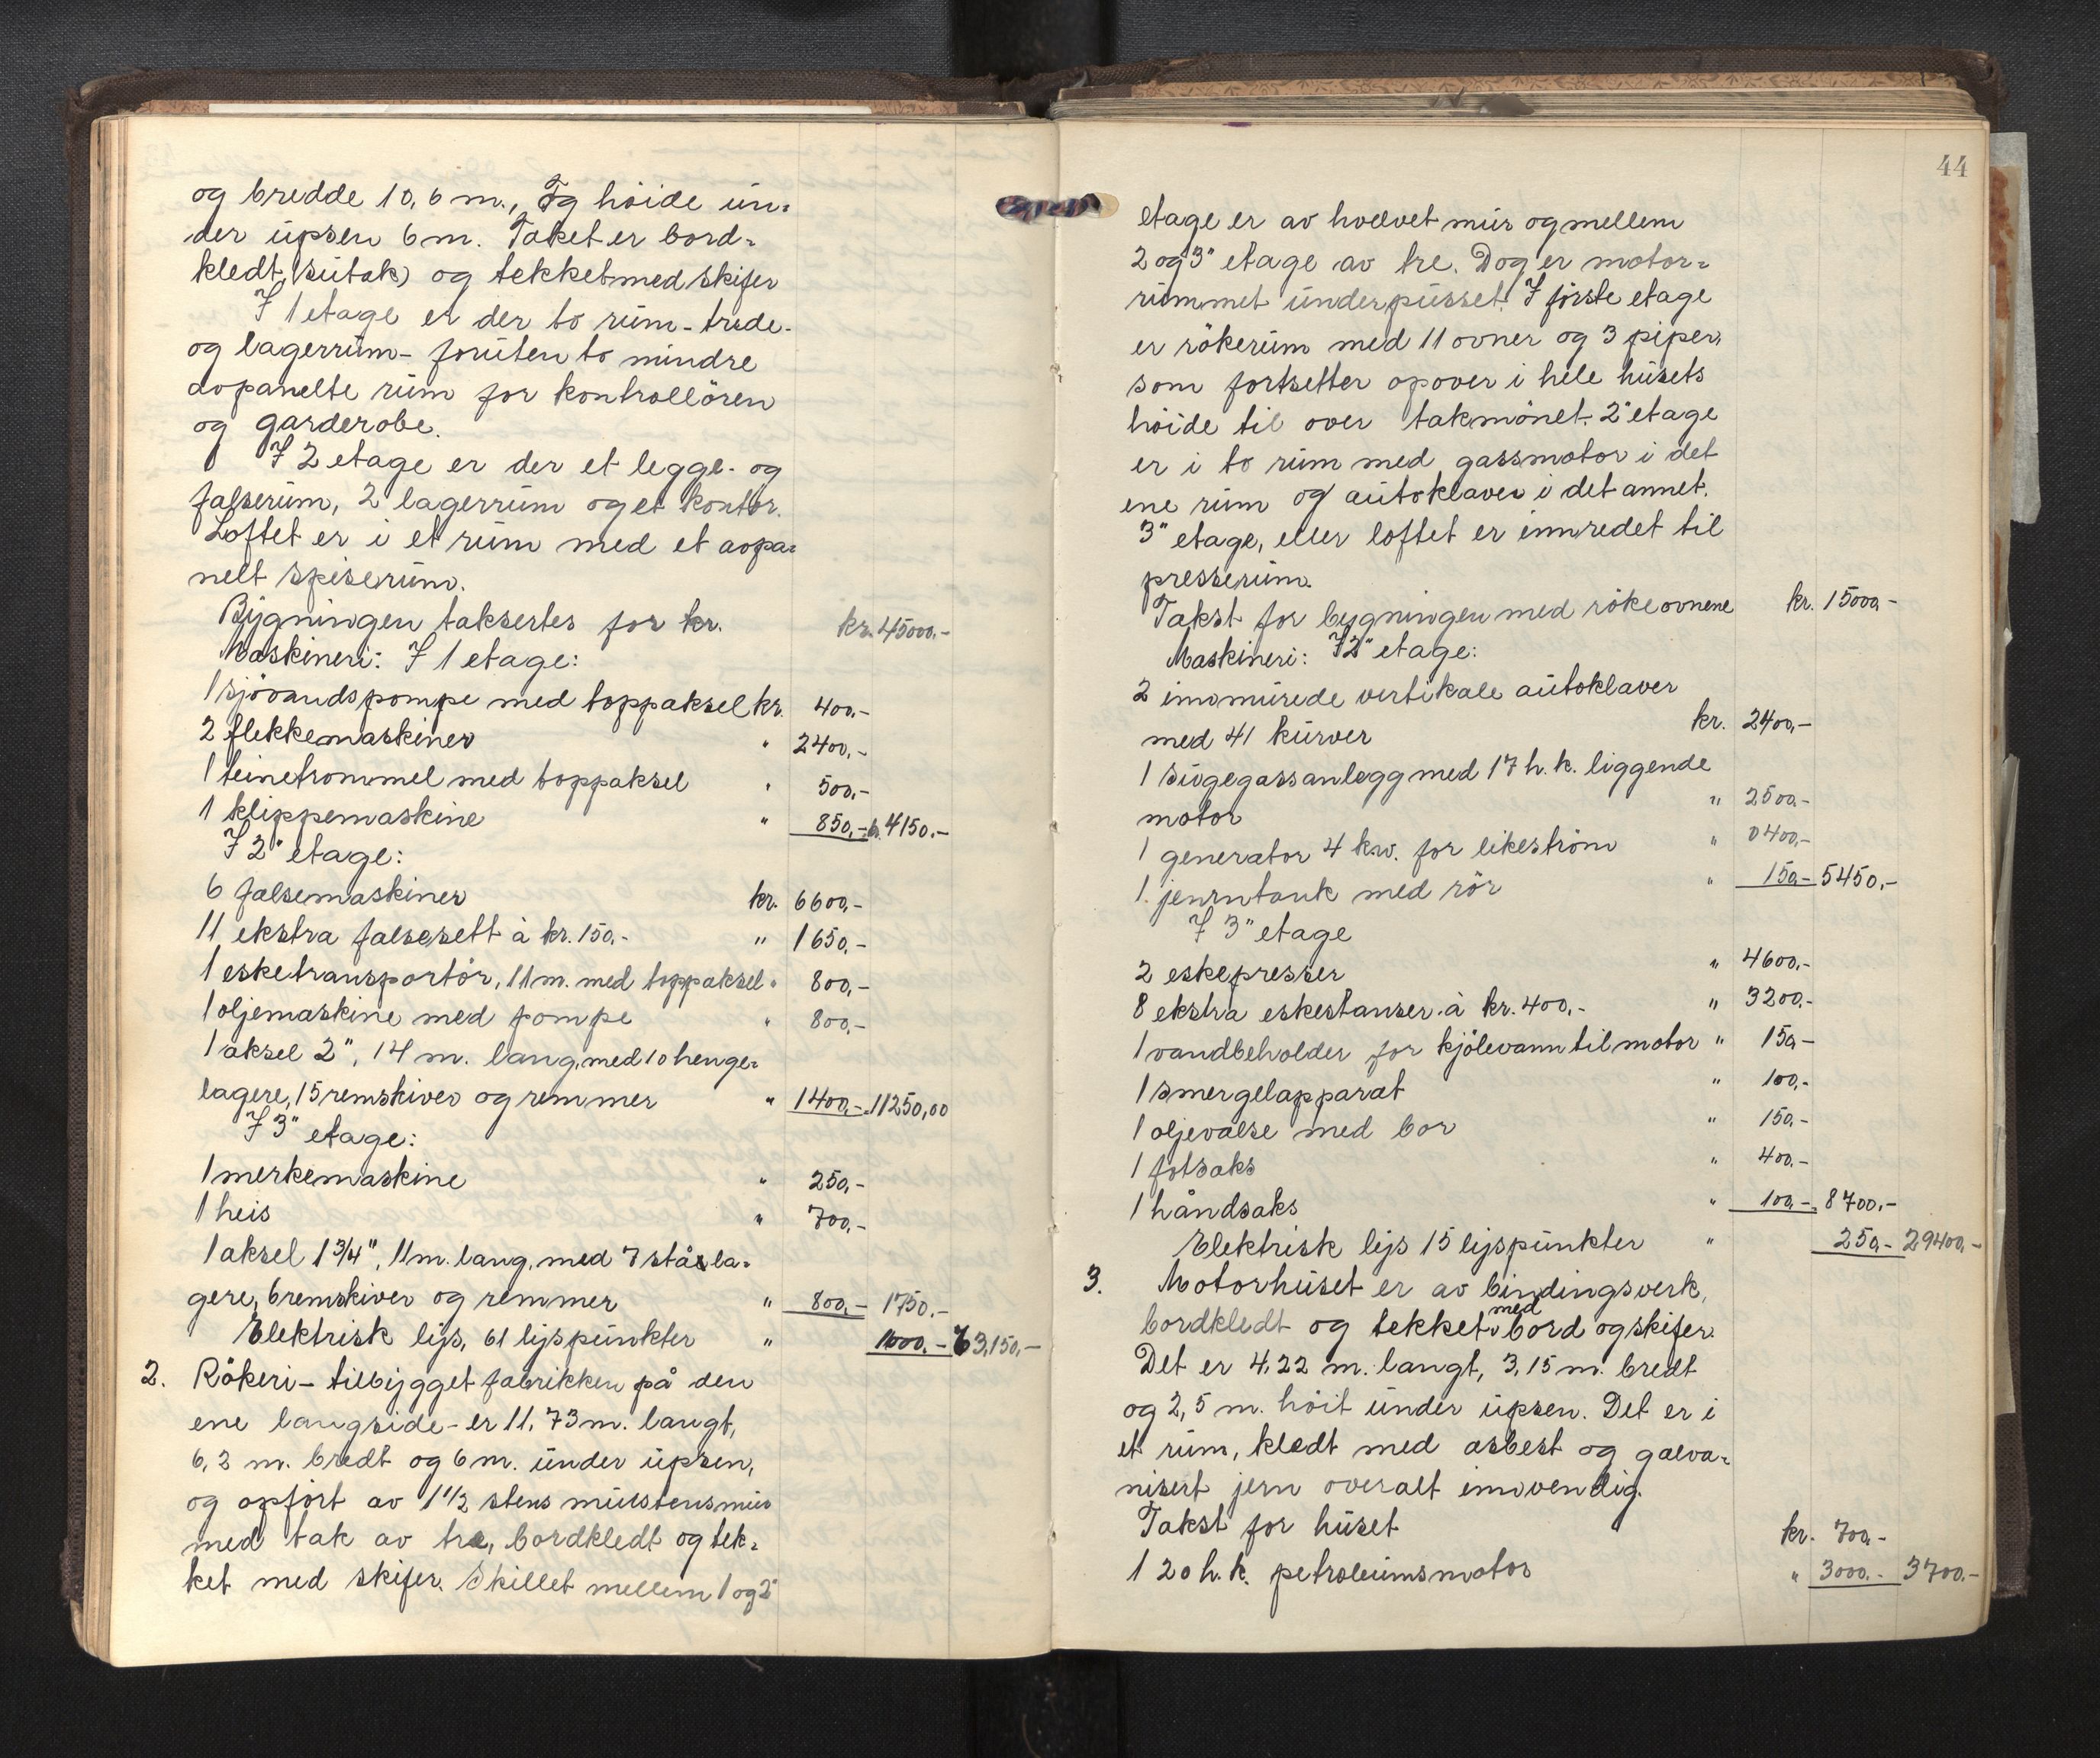 og bredde 10,6 m., og höide un-
der upsen 6 m. Taket er bord-
kledt (sutak) og tekket med skifer
I 1 etage er der to rum - træde-
og lagerrum - foruten to mindre
avpanelte rum for kontrollören
og garderobe.
I 2 etage er der et legge- og
falserum, 2 lagerrum og et kontor.
Loftet er i et rum med et avpa-
nelt spiserum.
Bygningen taksertes for kr. kr. 45000,-
Maskineri: I 1 etage:
1 sjövandspompe med toppaksel kr. 400,-
2 flekkemaskiner " 2400,-
1 teinetrommel med toppaksel " 500,-
1 klippemaskine " 850,- kr. 4150,-
I 2" etage:
6 falsemaskiner kr. 6600,-
11 ekstra falsesett à kr. 150,- " 1650,-
1 esketransportör, 11 m. med toppaksel " 800,-
1 oljemaskine med pompe " 800,-
1 aksel 2", 14 m. lang, med 10 henge-
lagere, 15 remskiver og remmer " 1400,- 11250,00
I 3" etage:
1 merkemaskine " 250,-
1 heis " 700,-
1 aksel 1 3/4", 11 m. lang, med 7 ståla-
gere, 6 remskiver og remmer " 800,- 1750,-
Elektrisk lys, 61 lyspunkter " 1000,- 63,150,-
2. Rökeri - tilbygget fabrikken på den
ene langside - er 11,73 m. langt,
6,2 m. bredt og 6 m. under upsen,
og opfört av 1 1/2 stens murstensmur
med tak av tre, bordkledt og tek-
ket med skifer. Skillet mellem 1 og 2"
44
etage er av hvelvet mur og mellem
2 og 3" etage av tre. Dog er motor-
rummet underpusset. I förste etage
er rökerum med 11 ovner og 3 piper,
som fortsetter opover i hele husets
höide til over takmönet. 2" etage
er i to rum med gassmotor i det
ene rum og autoklaver i det annet.
3" etage, eller loftet er innredet til
presserum.
Takst for bygningen med rökeovnene kr. 15000,-
Maskineri: I 2" etage:
2 innmurede vertikale autoklaver
med 41 kurver kr. 2400,-
1 sugegassanlegg med 17 h.k. liggende
motor " 2500,-
1 generator 4 kw. for likeström " 0400,-
1. jernntank med rör " 150,- 5450,-
I 3" etage
2 eskepresser " 4600,-
8 ekstra eskestanser à kr. 400,- " 3200,-
1 vandbeholder for kjölevann til motor " 150,-
1 smergelapparat " 100,-
1 oljevalse med bor " 150,-
1 fotsaks " 400,-
1 håndsaks " 100,- 8700,-
Elektrisk lys 15 lyspunkter " 250,- 29400,-
3. Motorhuset er av bindingsverk,
bordkledt og tekket med bord og skifer.
Det er 4,22 m. langt, 3,15 m. bredt
og 2,5 m. höit under upsen. Det er i
et rum, kledt med asbest og galva-
nisert jern overalt innvendig.
Takst for huset kr. 700,-
1 20 h.k. petroleumsmotor " 3000,- 3700,-